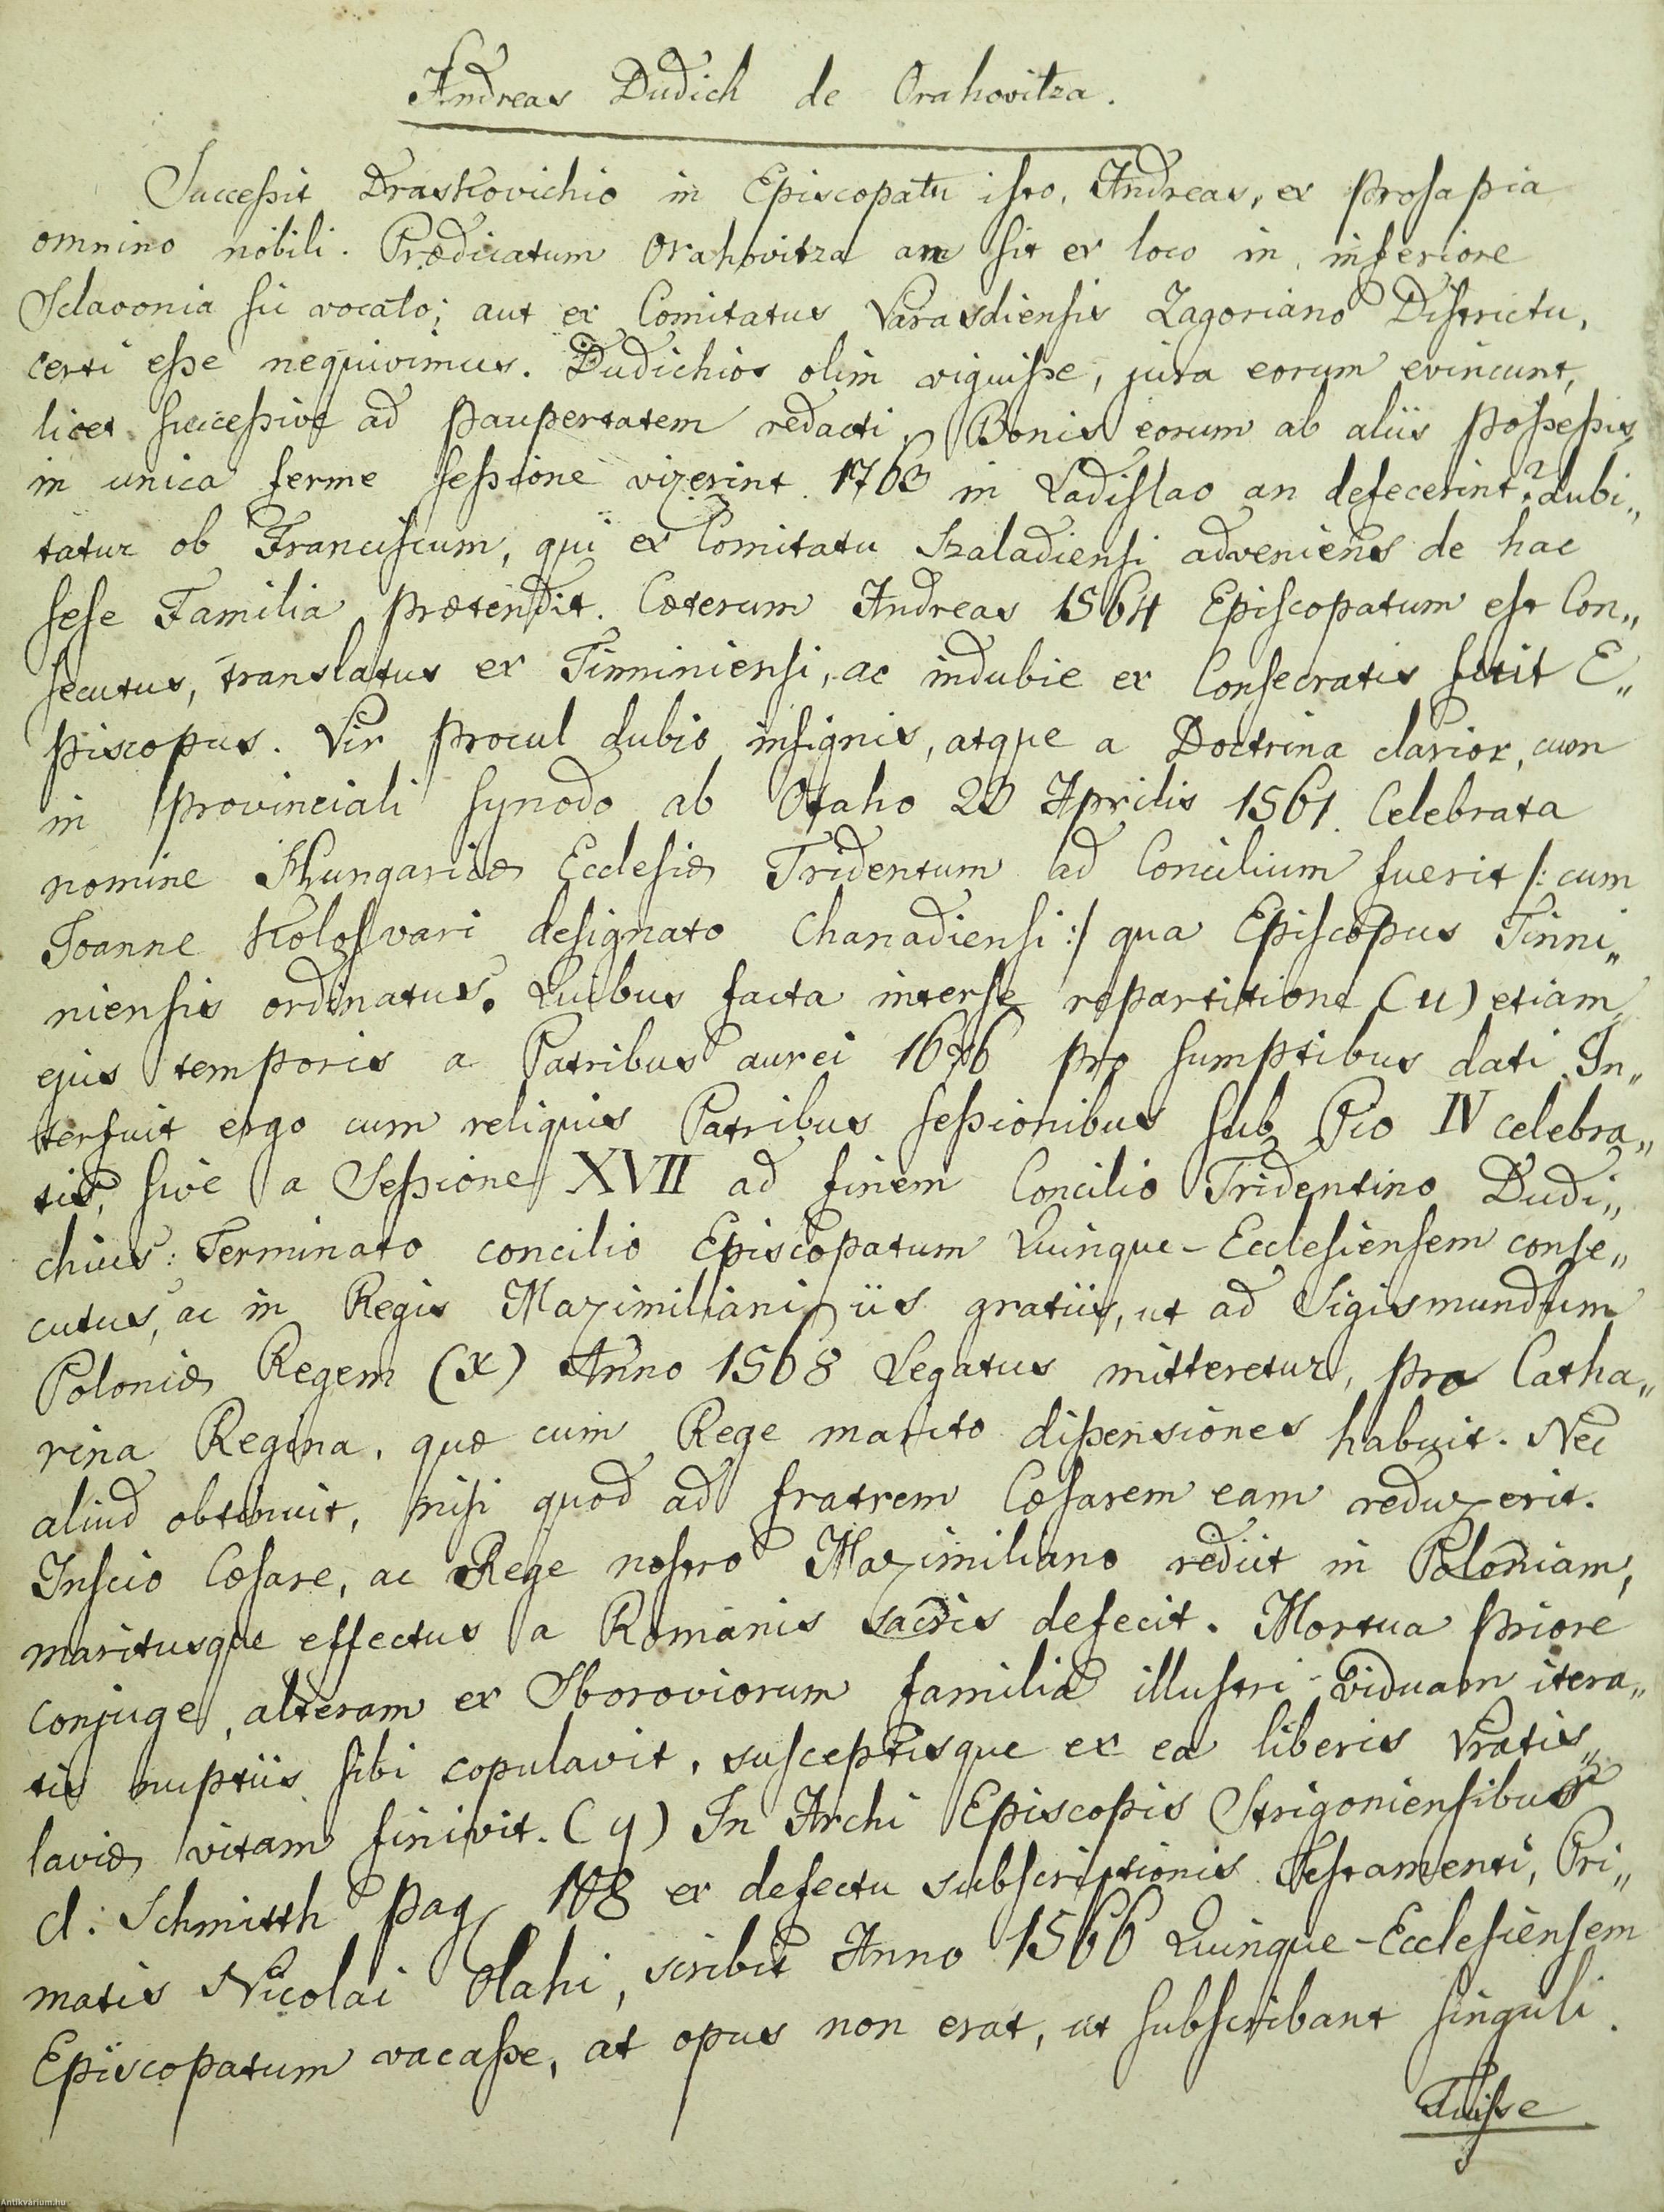 Andreas Dudich de Orahovitza.
Succeſsit Draskovichio in Episcopatu iſto, Andreas, ex proſapia
omnino nobili. Prædicatum Orahovitza an ſit ex loco in inferiore
Sclavonia ſic vocato; aut ex Comitatus Varasdienſis Zagoriano Diſtrictu,
certi eſse nequivimus. Dudichios olim viguiſse, jura eorum evincunt,
licet ſucceſsive ad paupertatem redacti, Bonis eorum ab aliis poſseſsis
in unica ferme ſeſsione vixerint. 1763 in Ladiſlao an defecerint? dubi„
tatur ob Franciſcum, qui ex Comitatu Szaladienſi adveniens de hac
ſeſe Familia prætendit. Cæterum Andreas 1564 Epiſcopatum eſt Con„
ſecutus, translatus ex Tinniniensi, ac indubie ex Conſecratis fuit E„
piscopus. Vir procul dubio inſignis, atque a Doctrina clarior, cum
in provinciali ſynodo ab Olaho 23 Aprilis 1561. Celebrata
nomine Hungaricæ Eccleſiæ Tridentum ad Concilium fuerit /: cum
Joanne Koloſvari deſignato Chanadienſi :/ qua Epiſcopus Tinni„
nienſis ordinatus. Quibus facta interſe repartitione (u) etiam
ejus temporis a Patribus aurei 1646 pro ſumptibus dati. In„
terfuit ergo cum reliquis Patribus ſeſsionibus ſub Pio IV celebra„
tis, ſive a Seſsione XVII ad finem Concilio Tridentino Dudi„
chius: Terminato concilio Episcopatum Quinque-Eccleſienſem conſe„
cutus, ac in Regis Maximiliani iis gratiis, ut ad Sigismundum
Poloniæ Regem (x) Anno 1568 Legatus mitteretur, pro Catha„
rina Regina, quæ cum Rege marito diſsensiones habuit. Nec
aliud obtinuit, niſi quod ad fratrem Cæſarem eam reduxerit.
Inſcio Cæſare, ac Rege noſtro Maximiliano rediit in Poloniam,
maritusque effectus a Romanis sacris defecit. Mortua priore
conjuge, alteram ex Sboroviorum familia illuſtri viduam itera„
tis nuptiis ſibi copulavit, suſceptisque ex ea liberis Vratis„
laviæ vitam finivit. (y) In Archi Episcopis Strigonienſibus
cl: Schmitth pag 108 ex defectu subſcriptionis Teſtamenti, Pri„
matis Nicolai Olahi, scribit Anno 1566 Quinque-Eccleſienſem
Episcopatum vacaſse, at opus non erat, ut ſubſcribant ſinguli.
Fuiſse
Antikvárium.hu